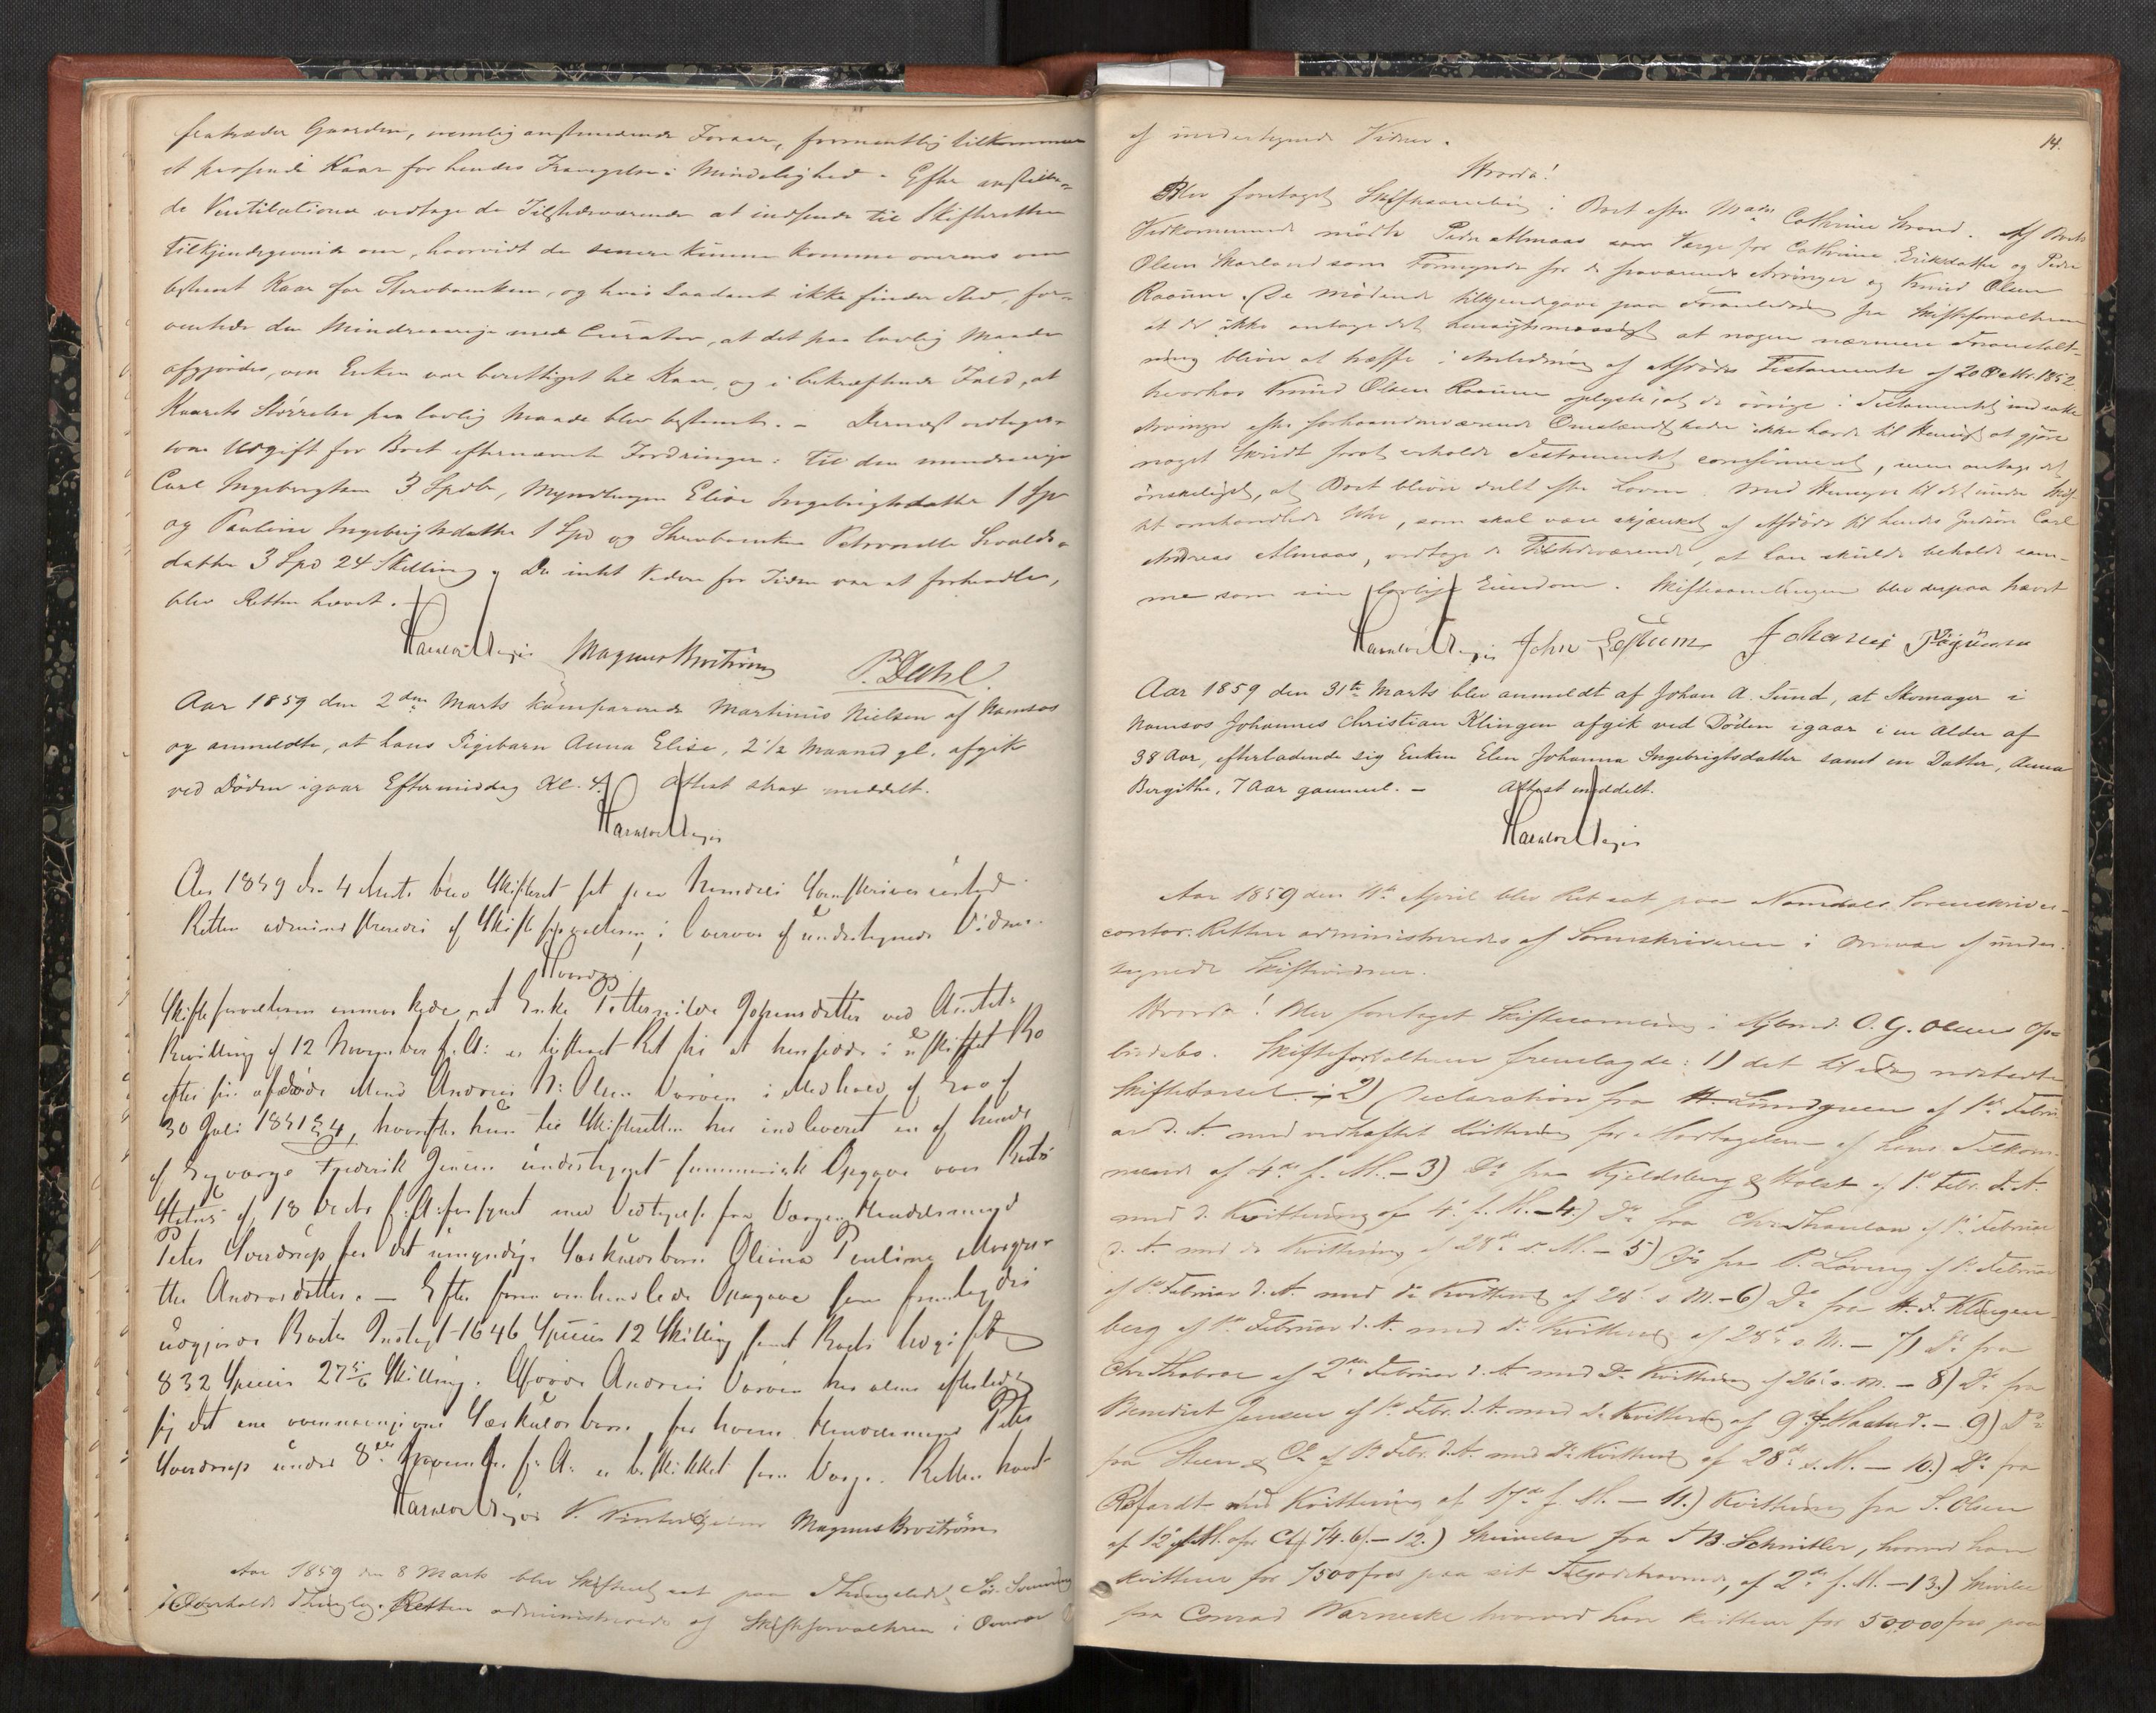 fratræder Gaarden, nemlig anstundende Foraar, formentlig tilkommer
et passende Kaar for hendes Fravigelse i Mindelighed. Efter anstille-
de Ventilationer vedtoge de Tilstedeværende at indsende til Skifteretten
Tilkjendegivende om, hvorvidt de senere kunne komme overens om
bestemt Kaar for Stervboenken, og hvis saadant ikke finder Sted, for-
ventede den Mindreaarige med Curator, at det paa lovlig Maade
afgjordes, om Enken var berettiget til Kaar, og i bekræftende Fald, at
Kaarets Størrelse paa lovlig Maade blev bestemt. - Dernæst vedtoges
som Udgift for Boet efternævnte Fordringer: til den mindreaarige
Carl Ingebrigtsen 3 Spdlr, Myndlingen Elise Ingebrigtsdatter 1 Spd
og Pauline Ingebrigtsdatter 1 Spd og Stervboenken Petronelle
datter 3 Spd 24 Skilling. Da intet videre for Tiden var at forhandle,
blev Retten hævet.
Magnus Broström P. Dahl.
Aar 1859 den 2den Marts komparerede Martinus Nielsen af Namsos
og anmeldte, at hans Pigebarn Anna Elise, 2 1/2 Maaned gl. afgik
ved Døden igaar Eftermiddag Kl. 4. Attest strax meddelt.
Aar 1859 den 4 Marts blev Skifteret sat paa Namdals Sorenskriver
Retten administreredes af Skifteforvalteren i Overvær af undertegnede Vidner.
Hvorda!
Skifteforvalteren anmærkede, at Enke Petternilde datter ved Amtets
Bevilling af 12 November f. A. er tilstaaet Ret til at hensidde i uskiftet Bo
efter sin afdøde Mand Andreas Olsen i Medhold af Lov af
30 Juli 1851 § 4, hvorefter hun til Skifteretten har indleveret en af hende
af Lavværge Frederik Jensen undertegnet summarisk Opgave over Boets
Status af 18 Decbr f. A. forsynet med Vedtagelse fra Værgen, Handelsmand
Peter Sverdrup for det umyndige Særkuldsbarn Oliana Pauline Margre-
the Andreasdatter. - Efter foran omhandlede Opgave som fremlagdes
udgjorde Boets Indtægt 1646 Species 12 Skilling samt Boets Udgift
832 Species 27 5/6 Skilling. Afdøde Andreas har alene efterladt
sig det ene ovennævnte Særkuldsbarn, for hvem Handelsmand Peter
Sverdrup under 8de November f. A. er beskikket som Værge. Retten hævet
Magnus Broström
Aar 1859 den 8 Marts blev Skifteret sat paa Thingstedet
i Overhalds Thinglag. Retten administreredes af Skifteforvalteren i Overvær
14.
af undertegnede Vidner.
Hvorda!
Blev foretaget Skiftesamling i Boet efter Mads Cathrine Strand. Af Boets
Vedkommende mødte Peder Almaas som Værge for Cathrine Eriksdatter og Peder
Olsen Skarland som Formynder for de fraværende Arvinger og Knud Olsen
Raaum. De mødende tilkjendegave paa Foranledning fra Skifteforvalteren
at de ikke antage det hensigtsmæssigt at nogen nærmere Foranstalt-
ning bliver at træffe i Anledning af Afdødes Testamente af 20 Octbr. 1852
hvorhos Knud Olsen Raaum oplyste, at de øvrige i Testamentet indsatte
Arvinger efter forhaandenværende Omstændigheder ikke havde til Hensigt at gjøre
noget Skridt for at erholde Testamentet confirmeret, men antage det
ønskeligst, at Boet bliver delt efter Loven. Med Hensyn til det under Skif-
tet omhandlede Uhr, som skal være skjænket af Afdøde til hendes Gudsøn Carl
Andreas Almaas, vedtoge de Tilstedeværende, at han skulde beholde sam-
me som sin lovlige Eiendom. Skiftesamlingen blev derpaa hævet
Aar 1859 den 31te Marts blev anmeldt af Johan A. Sund, at Skomager i
Namsos Johannes Christian Klingen afgik ved Døden igaar i en Alder af
38 Aar, efterladende sig Enken Elen Johanna Ingebrigtsdatter samt en Datter, Anna
Bergithe, 7 Aar gammel. - Attest meddelt.
Aar 1859 den 11te April blev Ret sat paa Namdals Sorenskriver-
contor. Retten administreredes af Sorenskriveren i Overvær af under-
tegnede Skiftevidner.
Hvorda! Blev foretaget Skiftesamling i Kjbmd. O. G. Olsens Op-
budsbo. Skifteforvalteren fremlagde: 1) det til idag udstedte
Skiftevarsel. 2) Declaration fra H. Lundgreen af 1ste Febru
ar d. A. med vedhæftet Kvittering for Modtagelsen af hans Tilkom-
mende af 4de f. M. - 3) Do fra Kjeldsberg & Holst af 1ste Febr. d. A.
med d. Kvittering af 4de f. M. - 4.) Do fra Chr. Thaulow af 1ste Februar
d. A. med do Kvittering af 28de s. M. - 5) Do fra P. Löving af 1ste Februar
af 1ste Februar d. A. med do Kvittering af 28de s. M. - 6) Do fra H. F. Klingen
berg af 1ste Februar d. A. med do Kvittering af 28de s. M. - 7) Do fra
Chr. af 2den Februar d. A. med Do Kvittering af 26de s. M. - 8) Do fra
Benedict Jensen af 1ste Febr. d. A. med do Kvittering af 9de f. Maaned. - 9) Do
fra Steen & Co af 1ste Febr. d. A. med Do Kvittering af 28de s. M. - 10.) Do fra
med Kvittering af 17de f. M. - 11.) Kvittering fra S. Olsen
af 12te f. M. - 12.) Skrivelse fra B. Schnitler, hvorved han
kvitterer for 7500 frcs paa sit Tilgodehavende, af 2den f. M. - 13.) Skrivelse
fra Conrad Warnecke hvorved han kvitterer for 50,000 frcs paa